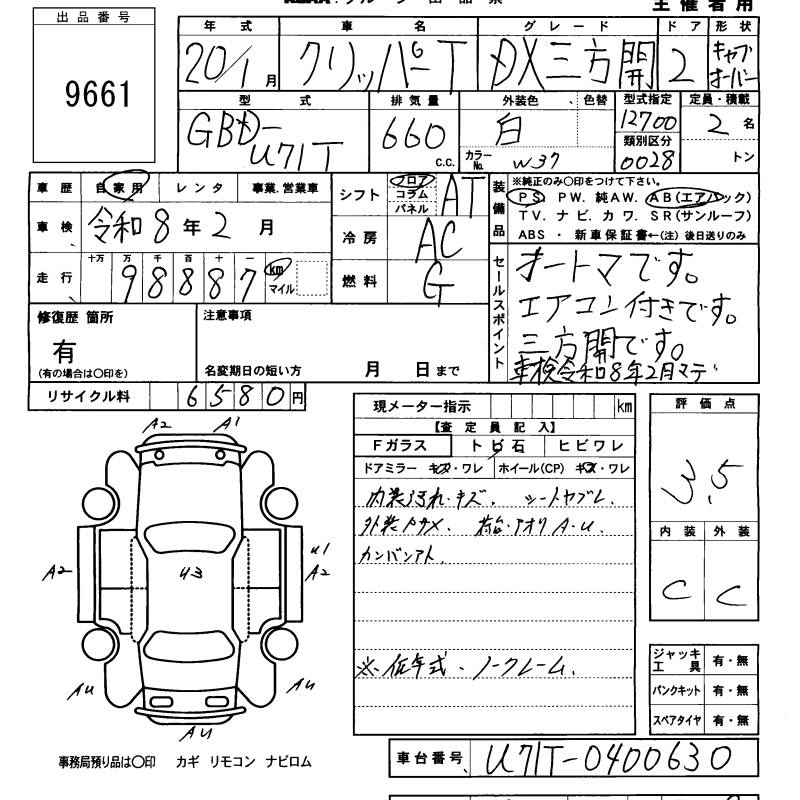 出品番号
9661
主催者用
年式 車名 グレード ドア 形状
20/1月 クリッパーT DX三方開 2 キャブオーバー
型式 排気量 外装色、色替 型式指定 定員・積載
GBD-U71T 660 c.c. 白 12700 2名
カラーNo. W37 類別区分 0028 トン
車歴 自家用 レンタ 事業.営業車
シフト フロア コラム パネル AT
装備品 ※純正のみ〇印をつけて下さい。
PS PW. 純AW. AB(エアバック)
TV. ナビ. カワ. SR(サンルーフ)
ABS ・ 新車保証書←(注) 後日送りのみ
車検 令和8年2月
冷房 AC
走行 十万 万 千 百 十 一 km マイル
98887
燃料 G
セールスポイント
オートマです。
エアコン付きです。
三方開です。
車検令和8年2月マデ
修復歴 箇所
有
(有の場合は〇印を)
注意事項
名変期日の短い方 月 日まで
リサイクル料 6580円
現メーター指示 km
【査定員記入】
Fガラス トビ石 ヒビワレ
ドアミラー キズ・ワレ ホイール(CP) キズ・ワレ
内装汚れ・キズ. シートヤブレ.
外装小キズ. 荷台・アオリ A・U.
カンバンアト.
※低年式・ノークレーム.
評価点
3.5
内装 外装
C C
A2 A1
A2 U3 U1 A2
AU AU
AU
ジャッキ工具 有・無
パンクキット 有・無
スペアタイヤ 有・無
事務局預り品は〇印 カギ リモコン ナビロム
車台番号 U71T-0400630